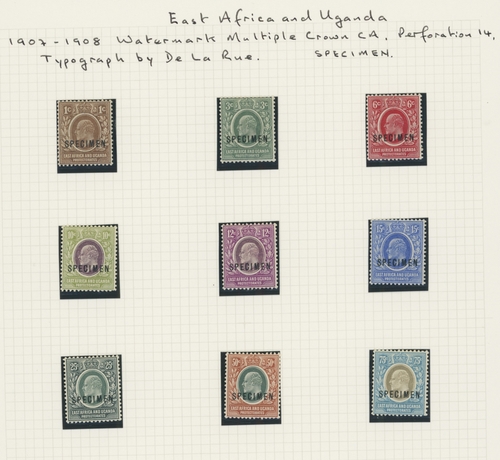 East Africa and Uganda
1907-1908 Watermark Multiple Crown CA. Perforation 14.
Typograph by De La Rue. SPECIMEN.
1c 1c
SPECIMEN
EAST AFRICA AND UGANDA
PROTECTORATES
3c 3c
SPECIMEN
EAST AFRICA AND UGANDA
PROTECTORATES
6c 6c
SPECIMEN
EAST AFRICA AND UGANDA
PROTECTORATES
10c 10c
SPECIMEN
EAST AFRICA AND UGANDA
PROTECTORATES
12c 12c
SPECIMEN
EAST AFRICA AND UGANDA
PROTECTORATES
15c 15c
SPECIMEN
EAST AFRICA AND UGANDA
PROTECTORATES
25c 25c
SPECIMEN
EAST AFRICA AND UGANDA
PROTECTORATES
50c 50c
SPECIMEN
EAST AFRICA AND UGANDA
PROTECTORATES
75c 75c
SPECIMEN
EAST AFRICA AND UGANDA
PROTECTORATES